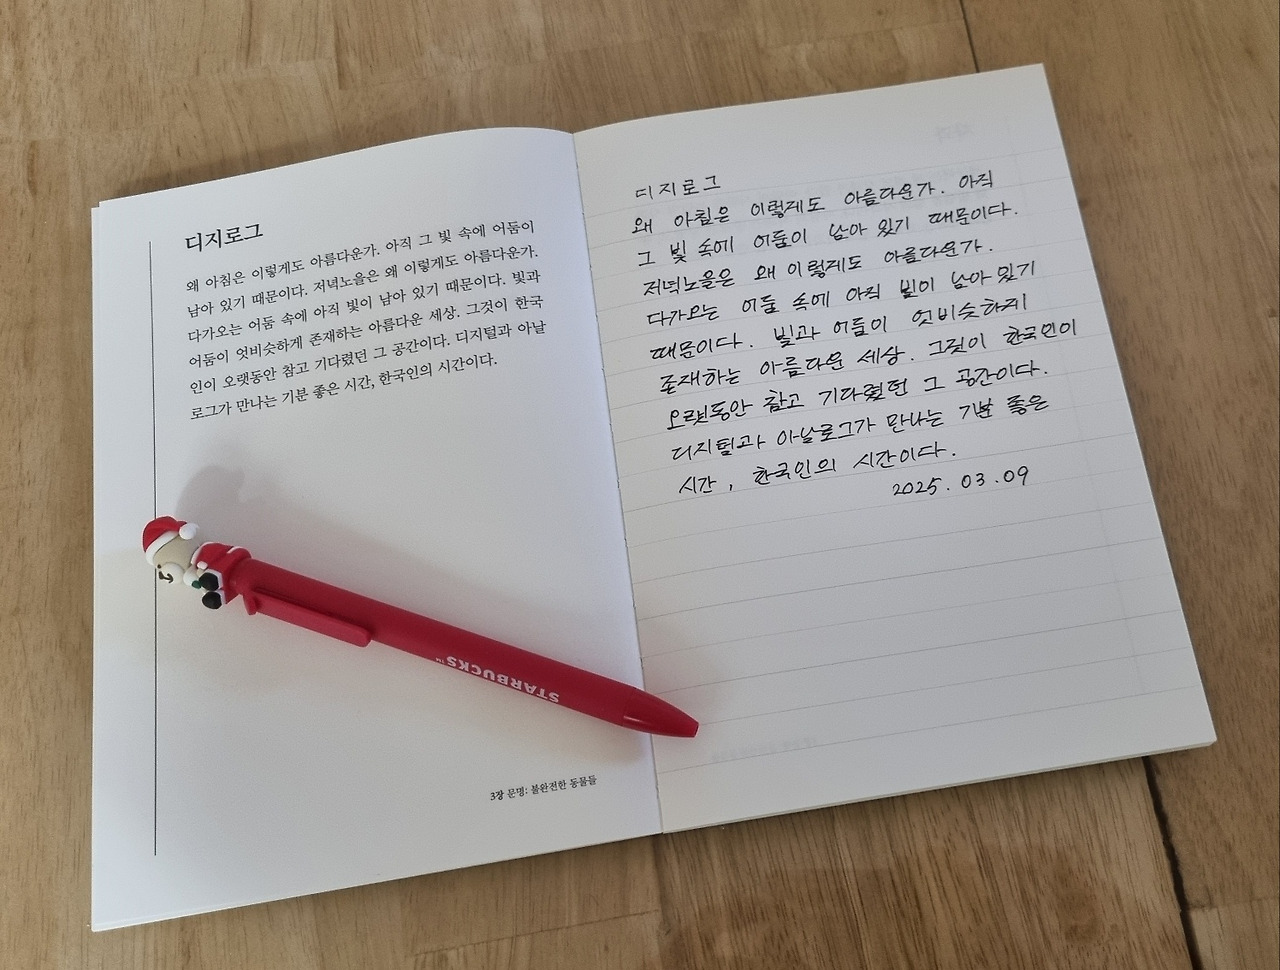 디지로그
왜 아침은 이렇게도 아름다운가. 아직 그 빛 속에 어둠이
남아 있기 때문이다. 저녁노을은 왜 이렇게도 아름다운가.
다가오는 어둠 속에 아직 빛이 남아 있기 때문이다. 빛과
어둠이 엇비슷하게 존재하는 아름다운 세상. 그것이 한국
인이 오랫동안 참고 기다렸던 그 공간이다. 디지털과 아날
로그가 만나는 기분 좋은 시간, 한국인의 시간이다.
3장 문명: 불완전한 동물들
STARBUCKS™
디지로그
왜 아침은 이렇게도 아름다운가. 아직
그 빛 속에 어둠이 남아 있기 때문이다.
저녁노을은 왜 이렇게도 아름다운가.
다가오는 어둠 속에 아직 빛이 남아 있기
때문이다. 빛과 어둠이 엇비슷하게
존재하는 아름다운 세상. 그것이 한국인이
오랫동안 참고 기다렸던 그 공간이다.
디지털과 아날로그가 만나는 기분 좋은
시간, 한국인의 시간이다.
2025.03.09